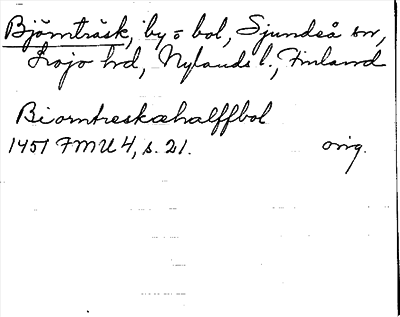 Björnträsk, by = bol, Sjundeå sn,
Lojo hd, Nylands l., Finland
Biorntreskæhalffbol
1451 FMU 4, s. 21. orig.